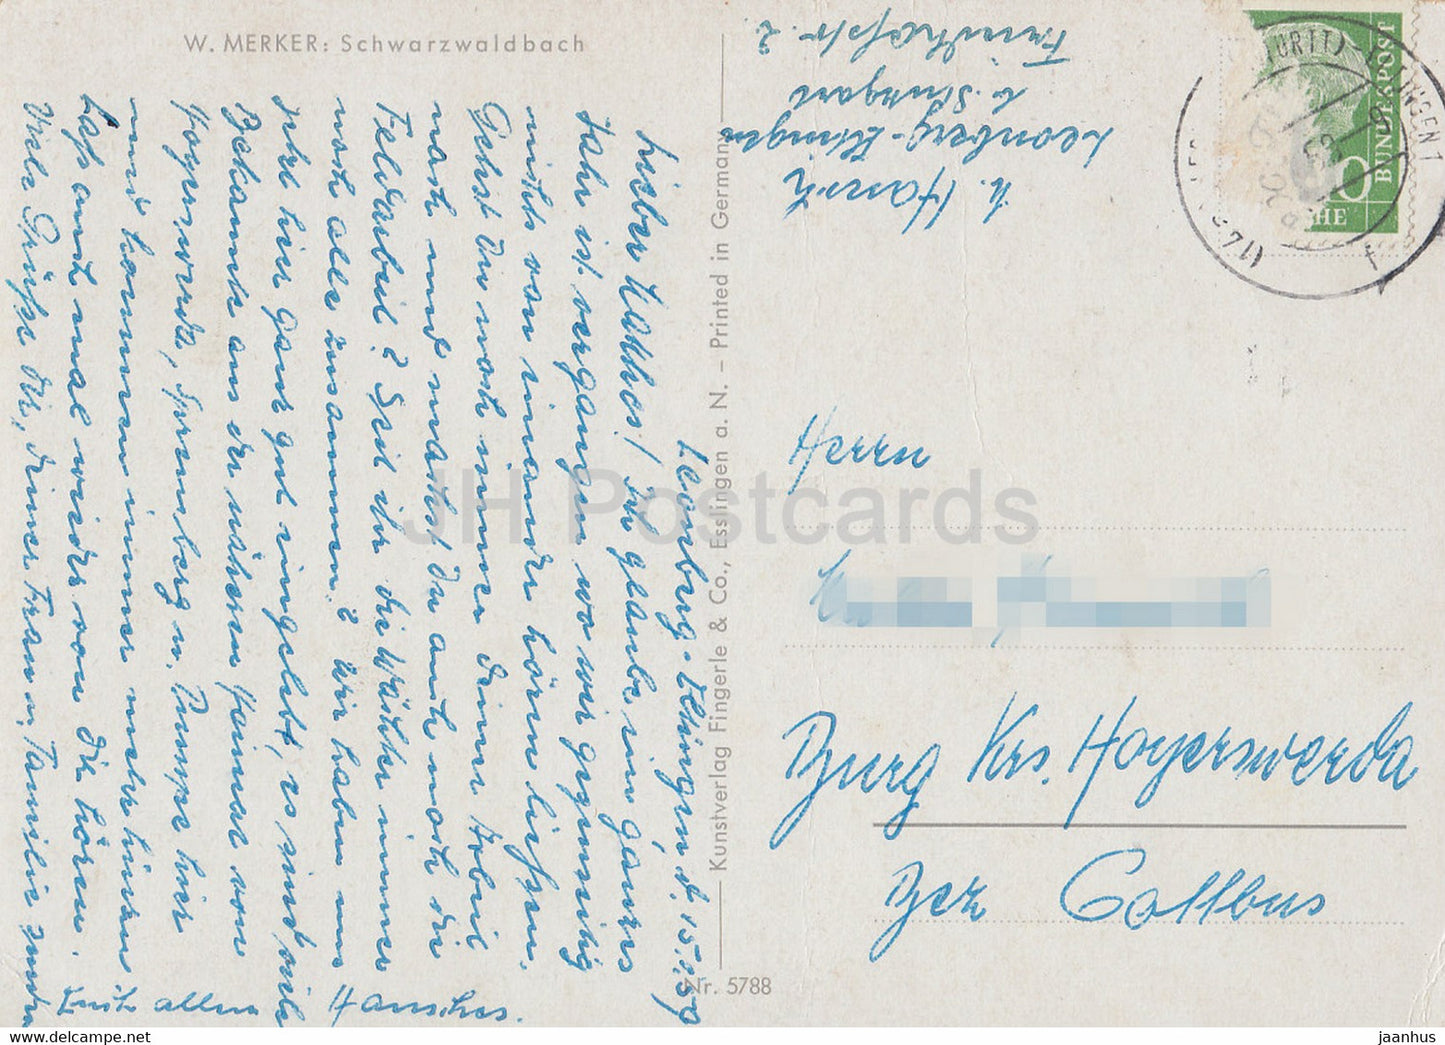 W. MERKER: Schwarzwaldbach
Leonberg-Eltingen, d. 15.2.59
Lieber Kathos! Ich glaube ein ganzes
Jahr ist vergangen wo wir gegenseitig
nichts von einander hören liessen.
Gehst Du noch immer deiner Arbeit
nach und machst Du auch noch die
Feldarbeit? Seid ihr die Wächter immer
noch alle zusammen? Wir haben uns
sehr hier ganz gut eingelebt, es sind viele
Bekannte aus der näheren Heimat von
Hoyerswerda, Spremberg u. Drumm hier
und kommen immer mehr hinzu
Lass auch mal wieder von Dir hören.
Viele Grüße Dir, deiner Frau u. Familie sendet
Euch allen Hansches.
Kunstverlag Fingerle & Co., Esslingen a. N. – Printed in Germany
Nr. 5788
Leonberg-Eltingen
b. Stuttgart
Friedhofstr. 2
BUNDESPOST
Herrn
Burg Krs. Hoyerswerda
Bez Cottbus
JH Postcards
jaanhus | www.delcampe.net